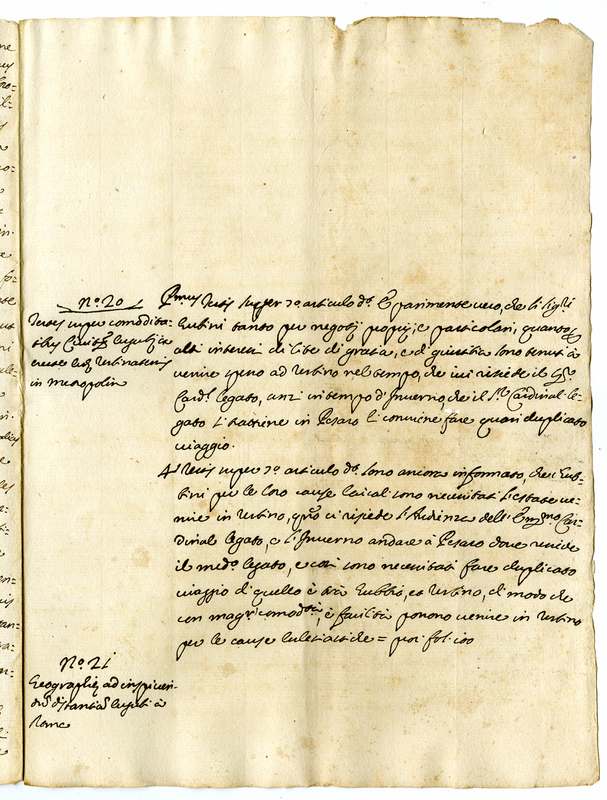 N.o 20
Testes super comodita-
in metropolim
Primus testis super 7.o articulo d.t È parimente vero, che li sig.ri
Eubini tanto per negotij proprij, e particolari, quanto
altri interessi di lite di gratia, e di giustitia sono tenuti à
venire spesso ad Urbino nel tempo, che ivi risiede il
Card. legato, anzi in tempo d'Inverno che il Cardinal le-
gato si trattiene in Pesaro li conviene fare quasi duplicato
viaggio.
4 testis super 7.o articulo d.t sono ancora informato, che i Eub-
bini per le loro cause laicali sono necessitati l'estate ve-
nire in Urbino, q.do ci risiede l'Audienza dell' Em.mo Car-
dinal legato, e l'Inverno andare à Pesaro dove risiede
il med.o legato, e così sono necessitati fare duplicato
viaggio di quello è trà Eubbio, et Urbino, di modo che
con magg.r comodità, è facilità possono venire in Urbino
per le cause = fol. 100
N.o 21
Geographię ad inspicien-
Roma